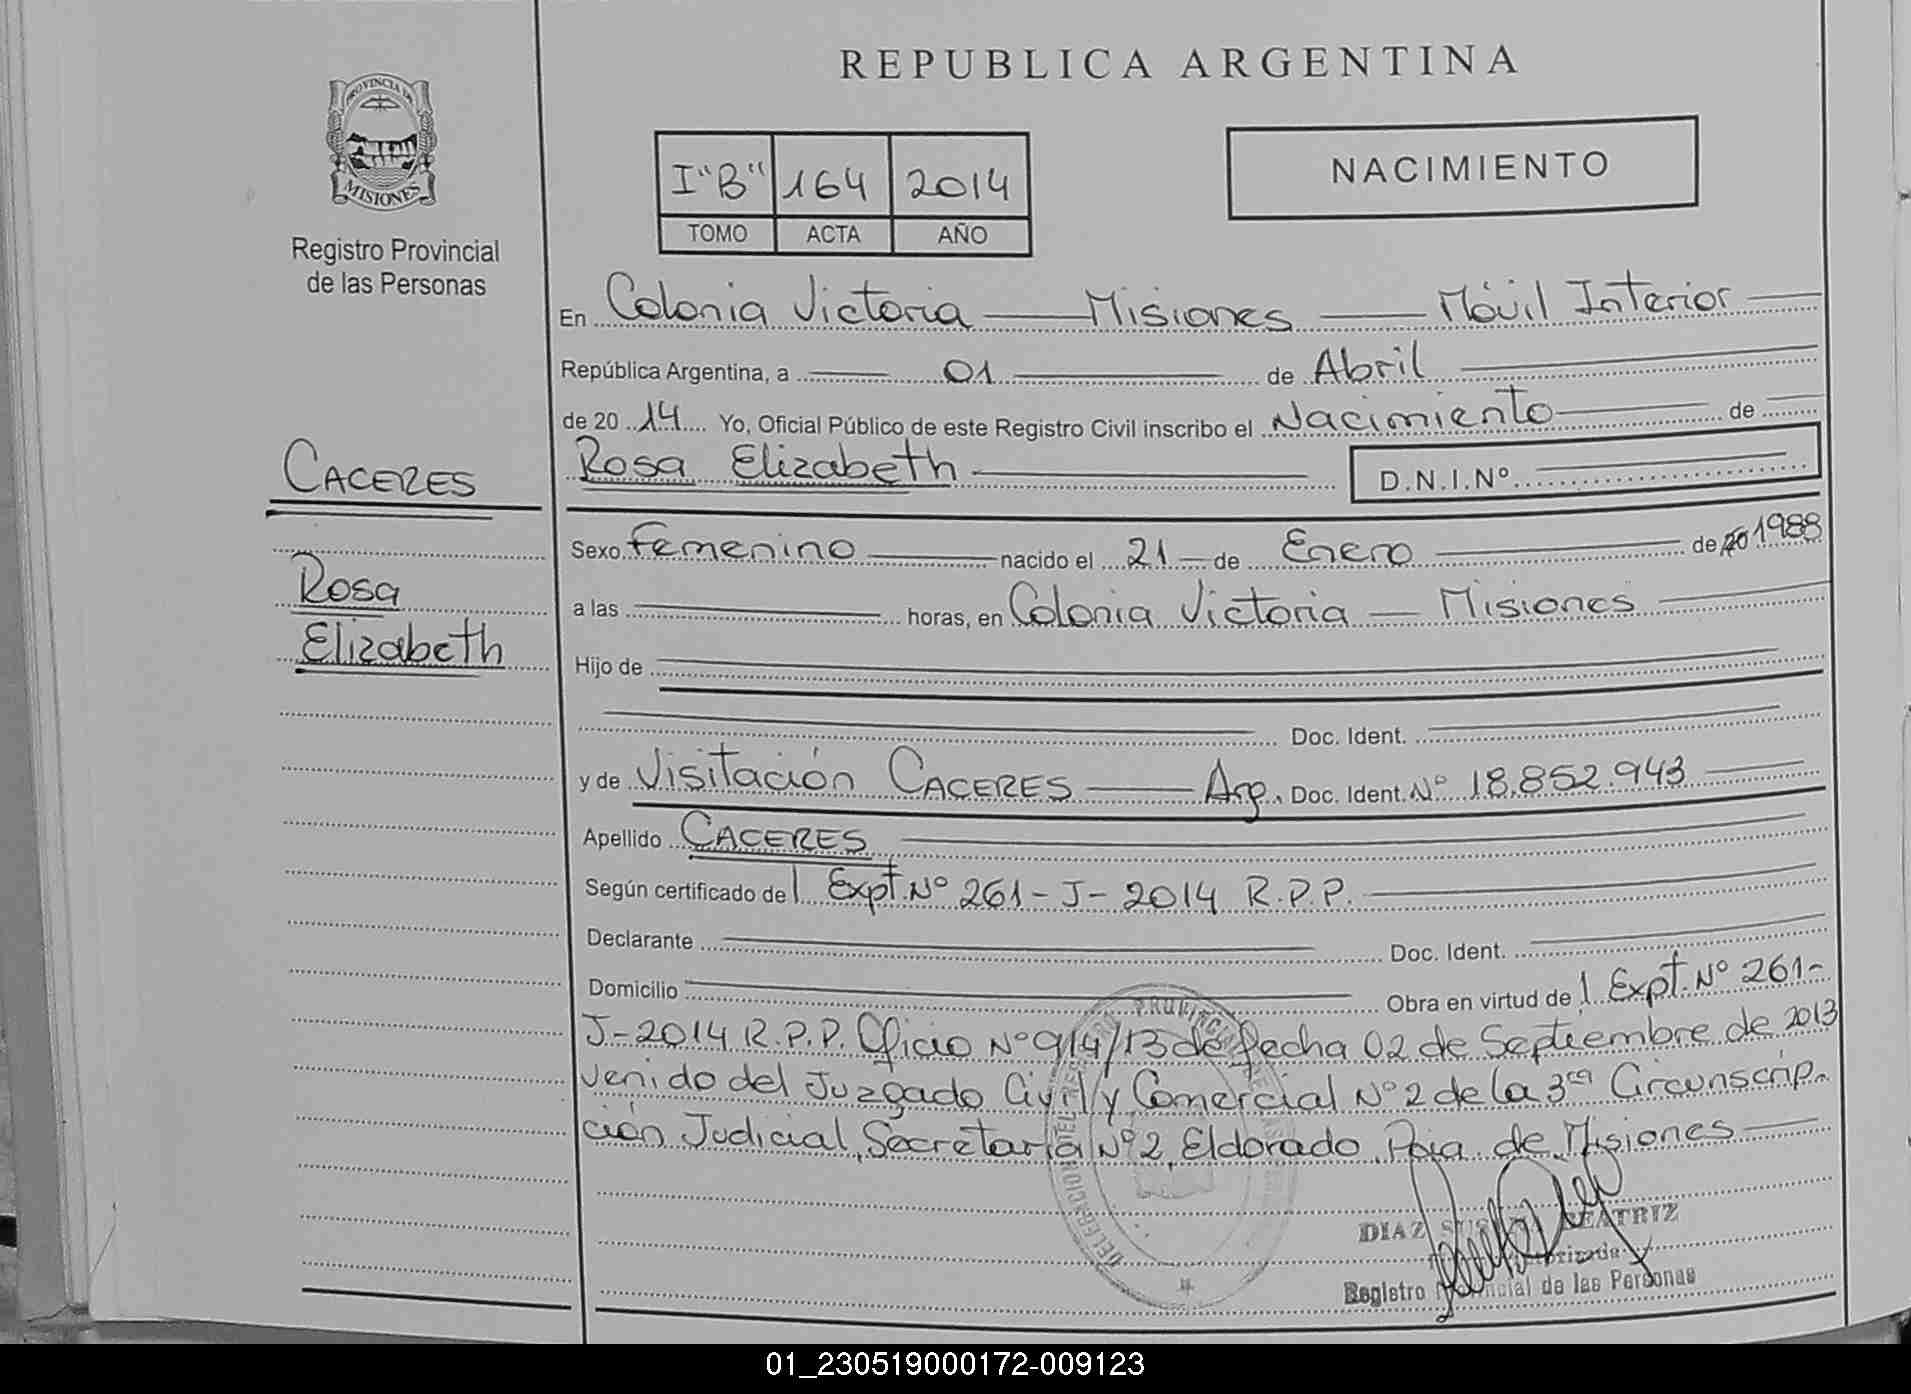 REPUBLICA ARGENTINA
PROVINCIA DE
MISIONES
Registro Provincial
de las Personas
I "B" 164 2014
TOMO ACTA AÑO
NACIMIENTO
En Colonia Victoria — Misiones — Móvil Interior
República Argentina, a 01 de Abril
de 20 14 Yo, Oficial Público de este Registro Civil inscribo el Nacimiento de
CACERES
Rosa Elizabeth D.N.I.Nº
Sexo Femenino nacido el 21 de Enero de 20 1988
Rosa
Elizabeth
a las horas, en Colonia Victoria — Misiones
Hijo de
Doc. Ident.
y de Visitación CACERES — Arg. Doc. Ident. Nº 18.852.943
Apellido CACERES
Según certificado de Expt. Nº 261-J-2014 R.P.P.
Declarante Doc. Ident.
Domicilio Obra en virtud de Expt. Nº 261-
J-2014 R.P.P. Oficio Nº 914/13 de fecha 02 de Septiembre de 2013
venido del Juzgado Civil y Comercial Nº 2 de la 3ra Circunscrip-
ción Judicial, Secretaría Nº 2, Eldorado Pcia. de Misiones
DIAZ SUS BEATRIZ
Registro Provincial de las Personas
01_230519000172-009123